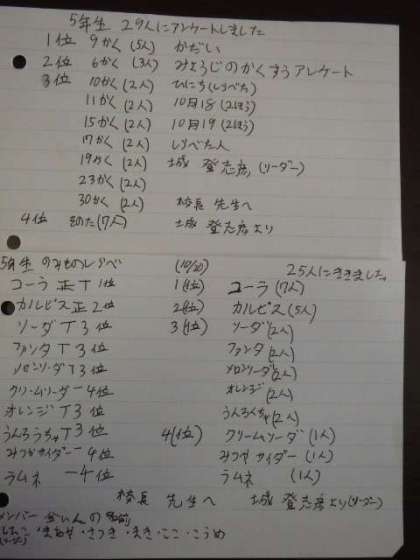 5年生 29人にアンケートしました
1位 9かく (5人) かだい
2位 6かく (3人) みょうじのかくすうアンケート
3位 10かく (2人) ひにち(しらべた)
11かく (2人) 10月18 (2ほう)
15かく (2人) 10月19 (2ほう)
17かく (2人) しらべた人
19かく (2人) 土城 登志彦 (リーダー)
23かく (2人)
30かく (2人) 校長 先生へ
4位 そのた (7人) 土城 登志彦より
5年生 のみものしらべ (10/20) 25人にききました。
コーラ 正T 1位 1(位) コーラ (7人)
カルピス 正 2位 2(位) カルピス (5人)
ソーダ T 3位 3(位) ソーダ (2人)
ファンタ T 3位 ファンタ (2人)
メロンソーダ T 3位 メロンソーダ (2人)
クリームソーダ 一 4位 オレンジ (2人)
オレンジ T 3位 うんろんちゃ (2人)
うんろうちゃ T 3位 4(位) クリームソーダ (1人)
みつやサイダー 一 4位 みつやサイダー (1人)
ラムネ 一 4位 ラムネ (1人)
校長 先生へ 土城 登志彦より (リーダー)
メンバー ぜんいんの名前
さつき・まき・ここ・こうめ